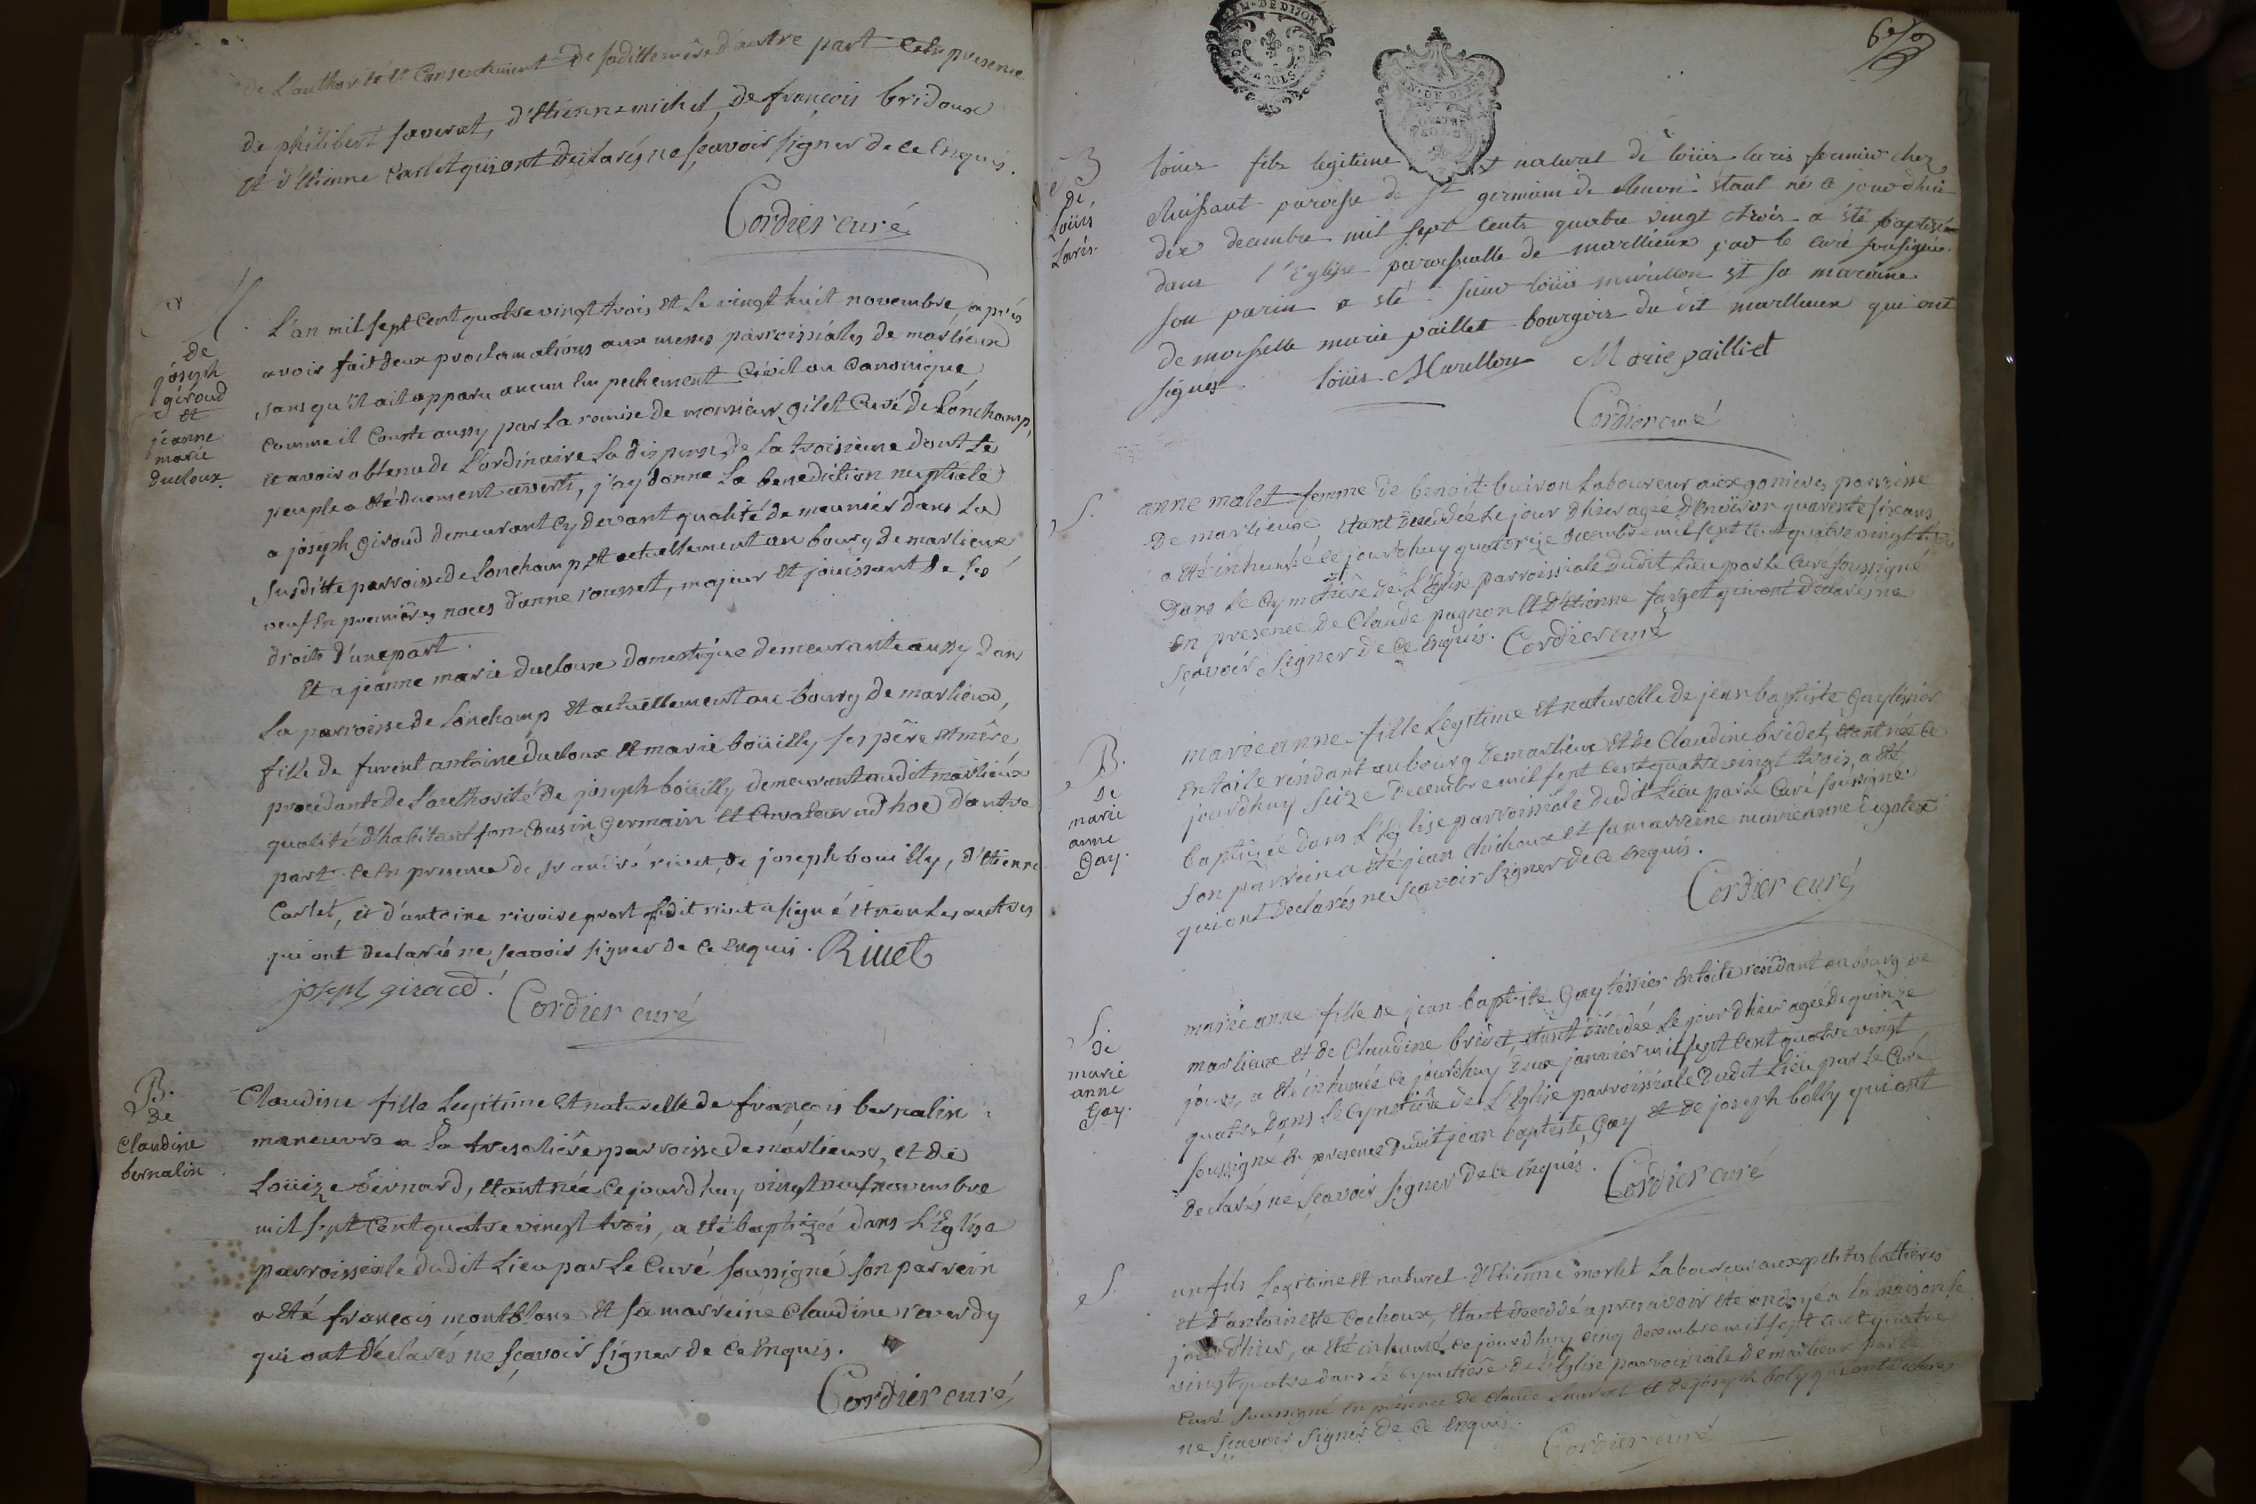 de L'authorité et Consentement de saditte mère d'autre part Ce en presence
de philibert sauvrat, d'Etienne michel, de françois bridoux
et d'Etienne Carlet qui ont Declarés ne sçavoir signer de ce Enquis.
Cordier curé
M.
de
joseph
géroud
et
jeanne
marie
ducloux.
L'an mil sept Cent quatre vingt trois et Le vingt huit novembre, après
avoir fait deux proclamations aux messes parroissiales de marlieux
sans qu'il ait apparu aucun Empechement Civil ou Canonique
Comme il Conste aussy par La remise de monsieur gilet Curé de Lonchamp,
et avoir obtenu de L'ordinaire La dispense de La troisième dont Le
peuple a été duement averti, j'ay donné La benediction nuptiale
a joseph giroud demeurant Cy devant qualité de meunier dans La
susditte parroisse de Lonchamp et actuellement au bourg de marlieux
veuf En premières noces d'anne rousset, majeur et jouissant de ses
droits d'une part.
Et a jeanne marie ducloux domestique demeurante aussy dans
La parroisse de Lonchamp et actuellement au bourg de marlieux,
fille de furent antoine ducloux et marie boüilly ses père et mère
procedante de L'authorité de joseph boüilly demeurant audit marlieux
qualité d'habitant son Cousin germain et Curateur ad hoc d'autre
part. Ce En presence de sr andré rivet, de joseph bouilly, d'Etienne
Carlet, et d'antoine rivoire dont Ledit rivet a signé et non Les autres
qui ont declarés ne sçavoir signer de ce Enquis. Rivet
joseph giraud. Cordier curé
B.
de
Claudine
bernalin
Claudine fille Legitime et naturelle de françois bernalin
maneuvre a La tresoliére parroisse de marlieux, et de
Loüize bernard, etant née Cejourd'huy vingt neuf novembre
mil sept Cent quatre vingt trois, a eté baptizée dans L'Eglise
parroissiale dudit Lieu par Le Curé soussigné son parrein
a eté françois montblanc et sa marreine Claudine raverdy
qui ont declarés ne sçavoir signer de ce Enquis.
Cordier curé
GEN. DE DIJON
6e
B
de
Loüis
Laris.
loüis fils legitime et naturel de loüis laris fermier chez
Chuissant paroisse de st germain de Renon étant né ce jourd'hui
dix decembre mil sept cents quatre vingt trois a été baptisé
dans l'Eglise paroissialle de marllieux par le curé soussigné.
son parin a été sieur loüis marillon et sa maraine
demoiselle marie paillet bourgois du dit marllieux qui ont
signés. loüis Marillon Marie pailliet
Cordier curé
S.
anne malet femme de benoit buiron Laboureur aux gonieres parroisse
De marlieux etant decedée Le jour d'hier agée d'Environ quarente six ans
a eté inhumée ce jourd'huy quatorze decembre mil sept cent quatre vingt trois
Dans Le Cymetière de L'Eglise parroissiale dudit Lieu par Le Curé soussigné
En presence de Claude pugnon et d'Etienne farget qui ont declarés ne
sçavoir signer de ce Enquis. Cordier curé
B.
de
marie
anne
Gay.
marie anne fille Legitime et naturelle de jean baptiste gay tissier
En toile résidant au bourg de marlieux et de Claudine bridet, etant née ce
jourd'huy seize Decembre mil sept Cent quatre vingt trois, a eté
baptizée dans L'Eglise parroissiale dudit Lieu par Le Curé soussigné.
son parrein a été jean chichoux et sa marreine marie anne
qui ont declarés ne sçavoir signer de ce Enquis.
Cordier curé
S.
de
marie
anne
Gay.
marie anne fille de jean baptiste Gay tissier En toile residant au bourg de
marlieux et de Claudine bridet, etant decedée Le jour d'hier agée de quinze
jours, a été inhumée ce jourd'huy deux janvier mil sept Cent quatre vingt
quatre dans Le Cymetière de L'Eglise parroissiale dudit Lieu par Le Curé
soussigné En presence dudit jean baptiste Gay et de joseph bolly qui ont
declarés ne sçavoir signer de ce Enquis. Cordier curé
S.
un fils Legitime et naturel d'Etienne morlet Laboureur aux petites battieres
et d'antoinette Cochoux, etant decedé apres avoir eté ondoyé a La maison Le
jour d'hier, a été inhumé ce jourd'huy cinq decembre mil sept cent quatre
vingt quatre dans Le Cymetière de L'Eglise parroissiale de marlieux par Le
Curé soussigné En presence de Claude sauvrat et de joseph boly qui ont declarés
ne sçavoir signer de ce Enquis.
Cordier curé